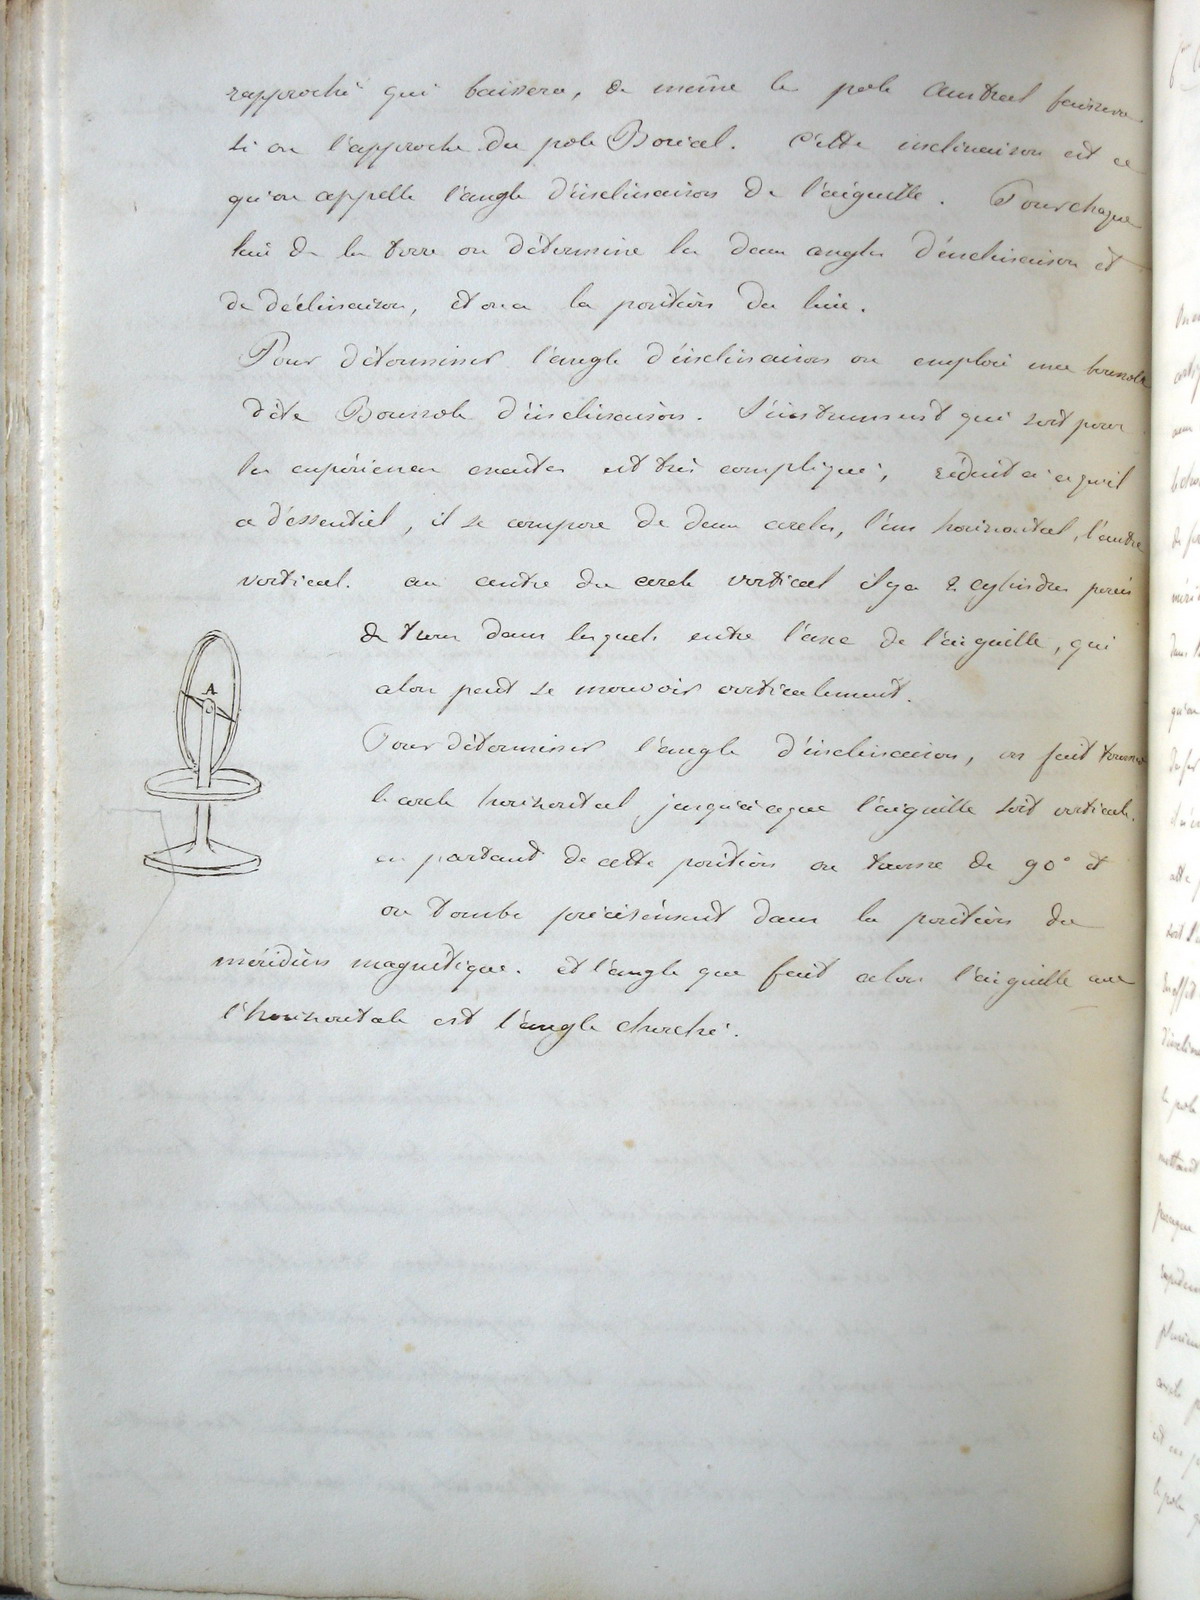 rapproché qui baissera, de même le pole austral baissera
si on l'approche du pole Boréal. Cette inclinaison est ce
qu'on appelle l'angle d'inclinaison de l'aiguille. Pour chaque
lieu de la terre on détermine les deux angles d'inclinaison et
de déclinaison, et on a la position du lieu.
Pour déterminer l'angle d'inclinaison on emploie une boussole
dite Boussole d'inclinaison. L'instrument qui sert pour
les expériences exactes est très compliqué, réduit à ce qu'il
a d'essentiel, il se compose de deux cercles, l'un horizontal, l'autre
vertical. au centre du cercle vertical il y a 2 cylindres percés
A
de trous dans lesquels entre l'axe de l'aiguille, qui
alors peut se mouvoir verticalement.
Pour déterminer l'angle d'inclinaison, on fait tourner
le cercle horizontal jusqu'à ce que l'aiguille soit verticale.
en partant de cette position on tourne de 90° et
on tombe précisément dans la position du
méridien magnétique. et l'angle que fait alors l'aiguille avec
l'horizontale est l'angle cherché.